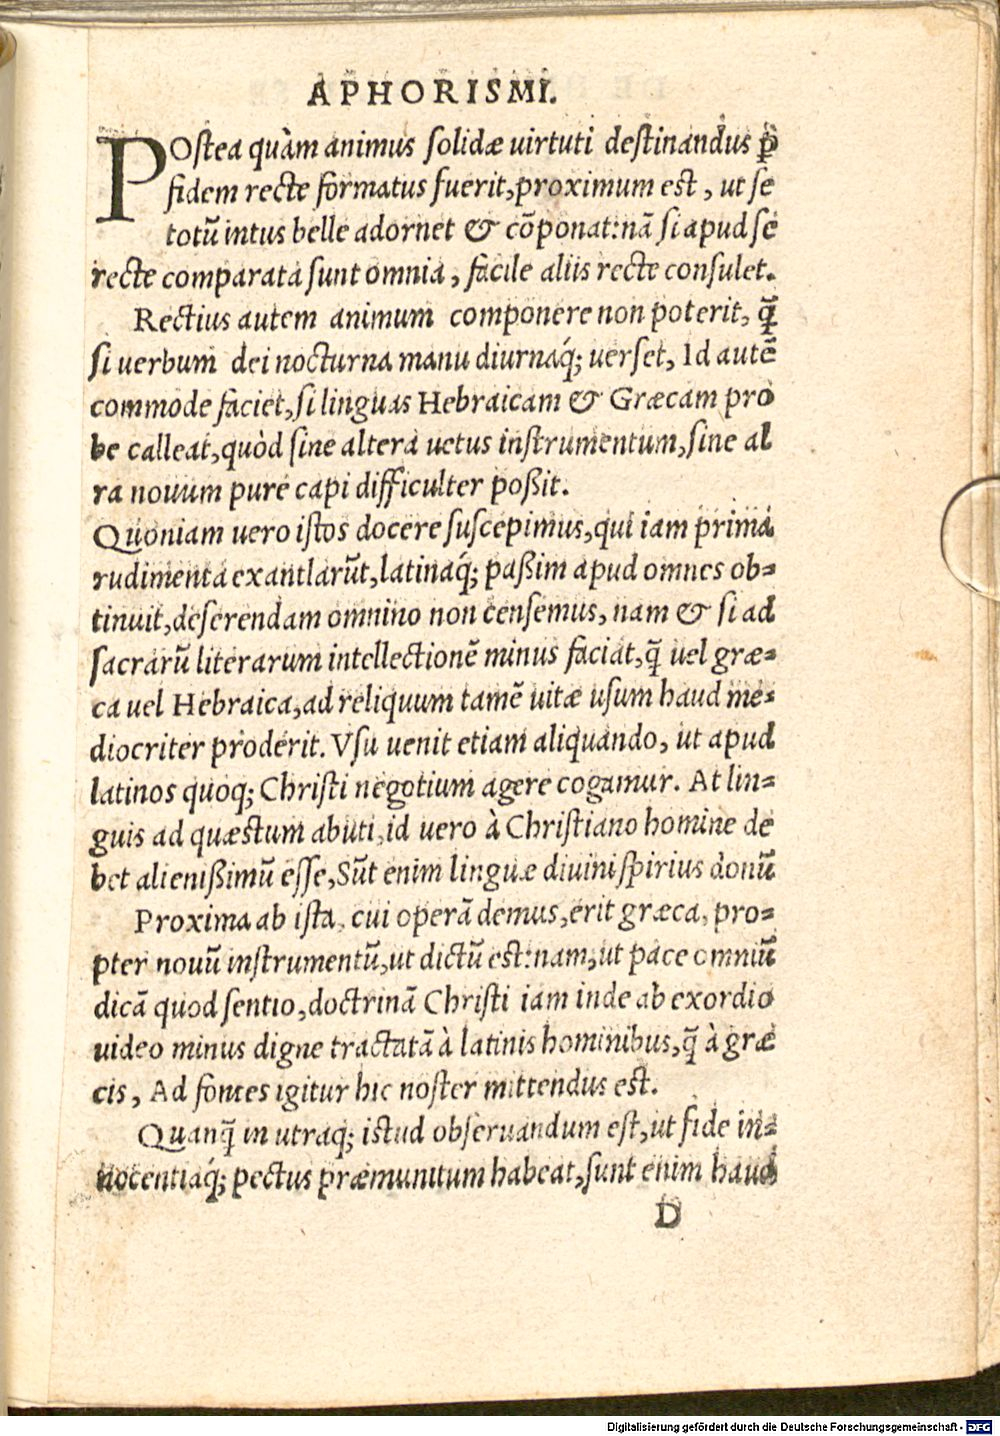 APHORISMI.
POstea quàm animus solidæ uirtuti destinandus p̱
fidem recte formatus fuerit, proximum est, ut se
totū intus belle adornet & cōponat: nā si apud se
recte comparata sunt omnia, facile aliis recte consulet.
Rectius autem animum componere non poterit, q̄
si uerbum dei nocturna manu diurnaq́; uerset, Id autē
commode faciet, si linguas Hebraicam & Græcam pro
be calleat, quòd sine altera uetus instrumentum, sine al
ra nouum pure capi difficulter poßit.
Quoniam uero istos docere suscepimus, qui iam prima
rudimenta exantlarūt, latinaq́; paßim apud omnes ob-
tinuit, deserendam omnino non censemus, nam & si ad
sacrarū literarum intellectionē minus faciat, q̄ uel græ-
ca uel Hebraica, ad reliquum tamē uitæ usum haud me-
diocriter proderit. Vsu uenit etiam aliquando, ut apud
latinos quoq; Christi negotium agere cogamur. At lin-
guis ad quæstum abuti, id uero à Christiano homine de
bet alienißimū esse, Sūt enim linguæ diuini spirius donū
Proxima ab ista, cui operā demus, erit græca, pro-
pter nouū instrumentū, ut dictū est: nam, ut pace omniū
dicā quod sentio, doctrinā Christi iam inde ab exordio
uideo minus digne tractatā à latinis hominibus, q̄ à græ
cis, Ad fontes igitur hic noster mittendus est.
Quanq̄ in utraq; istud obseruandum est, ut fide in-
nocentiaq́; pectus præmunitum habeat, sunt enim haud
D
Digitalisierung gefördert durch die Deutsche Forschungsgemeinschaft - DFG